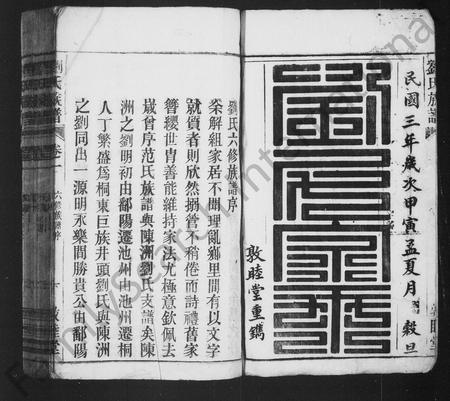 劉氏族譜
民國三年歲次甲寅孟夏月 穀旦
劉氏宗乘
敦睦堂重鐫
劉氏六修族譜序
余解組家居不聞理亂鄉里間有以文字
就質者則欣然搦管不稍倦而詩禮舊家
簪纓世胄善能維持家法尤極意欽佩去
歲曾序范氏族譜與陳洲劉氏支譜矣陳
洲之劉明初由鄱陽遷池州由池州遷桐
人丁繁盛為桐東巨族井頭劉氏與陳洲
之劉同出一源明永樂間勝貴公由鄱陽
劉氏族譜 卷一 六修族譜序 敦睦堂
FamilySearch International